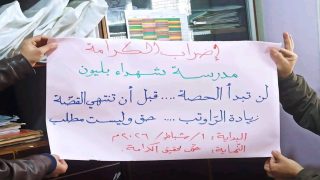 إضراب الكرامة
مدرسة شهداء بليون
لن تبدأ الحصة .... قبل أن تنتهي القصة
زيادة الرواتب .... حق وليست مطلب
البداية : ١ / شباط / ٢٠٢٦ م
النهاية : حتى تحقيق الكرامة.